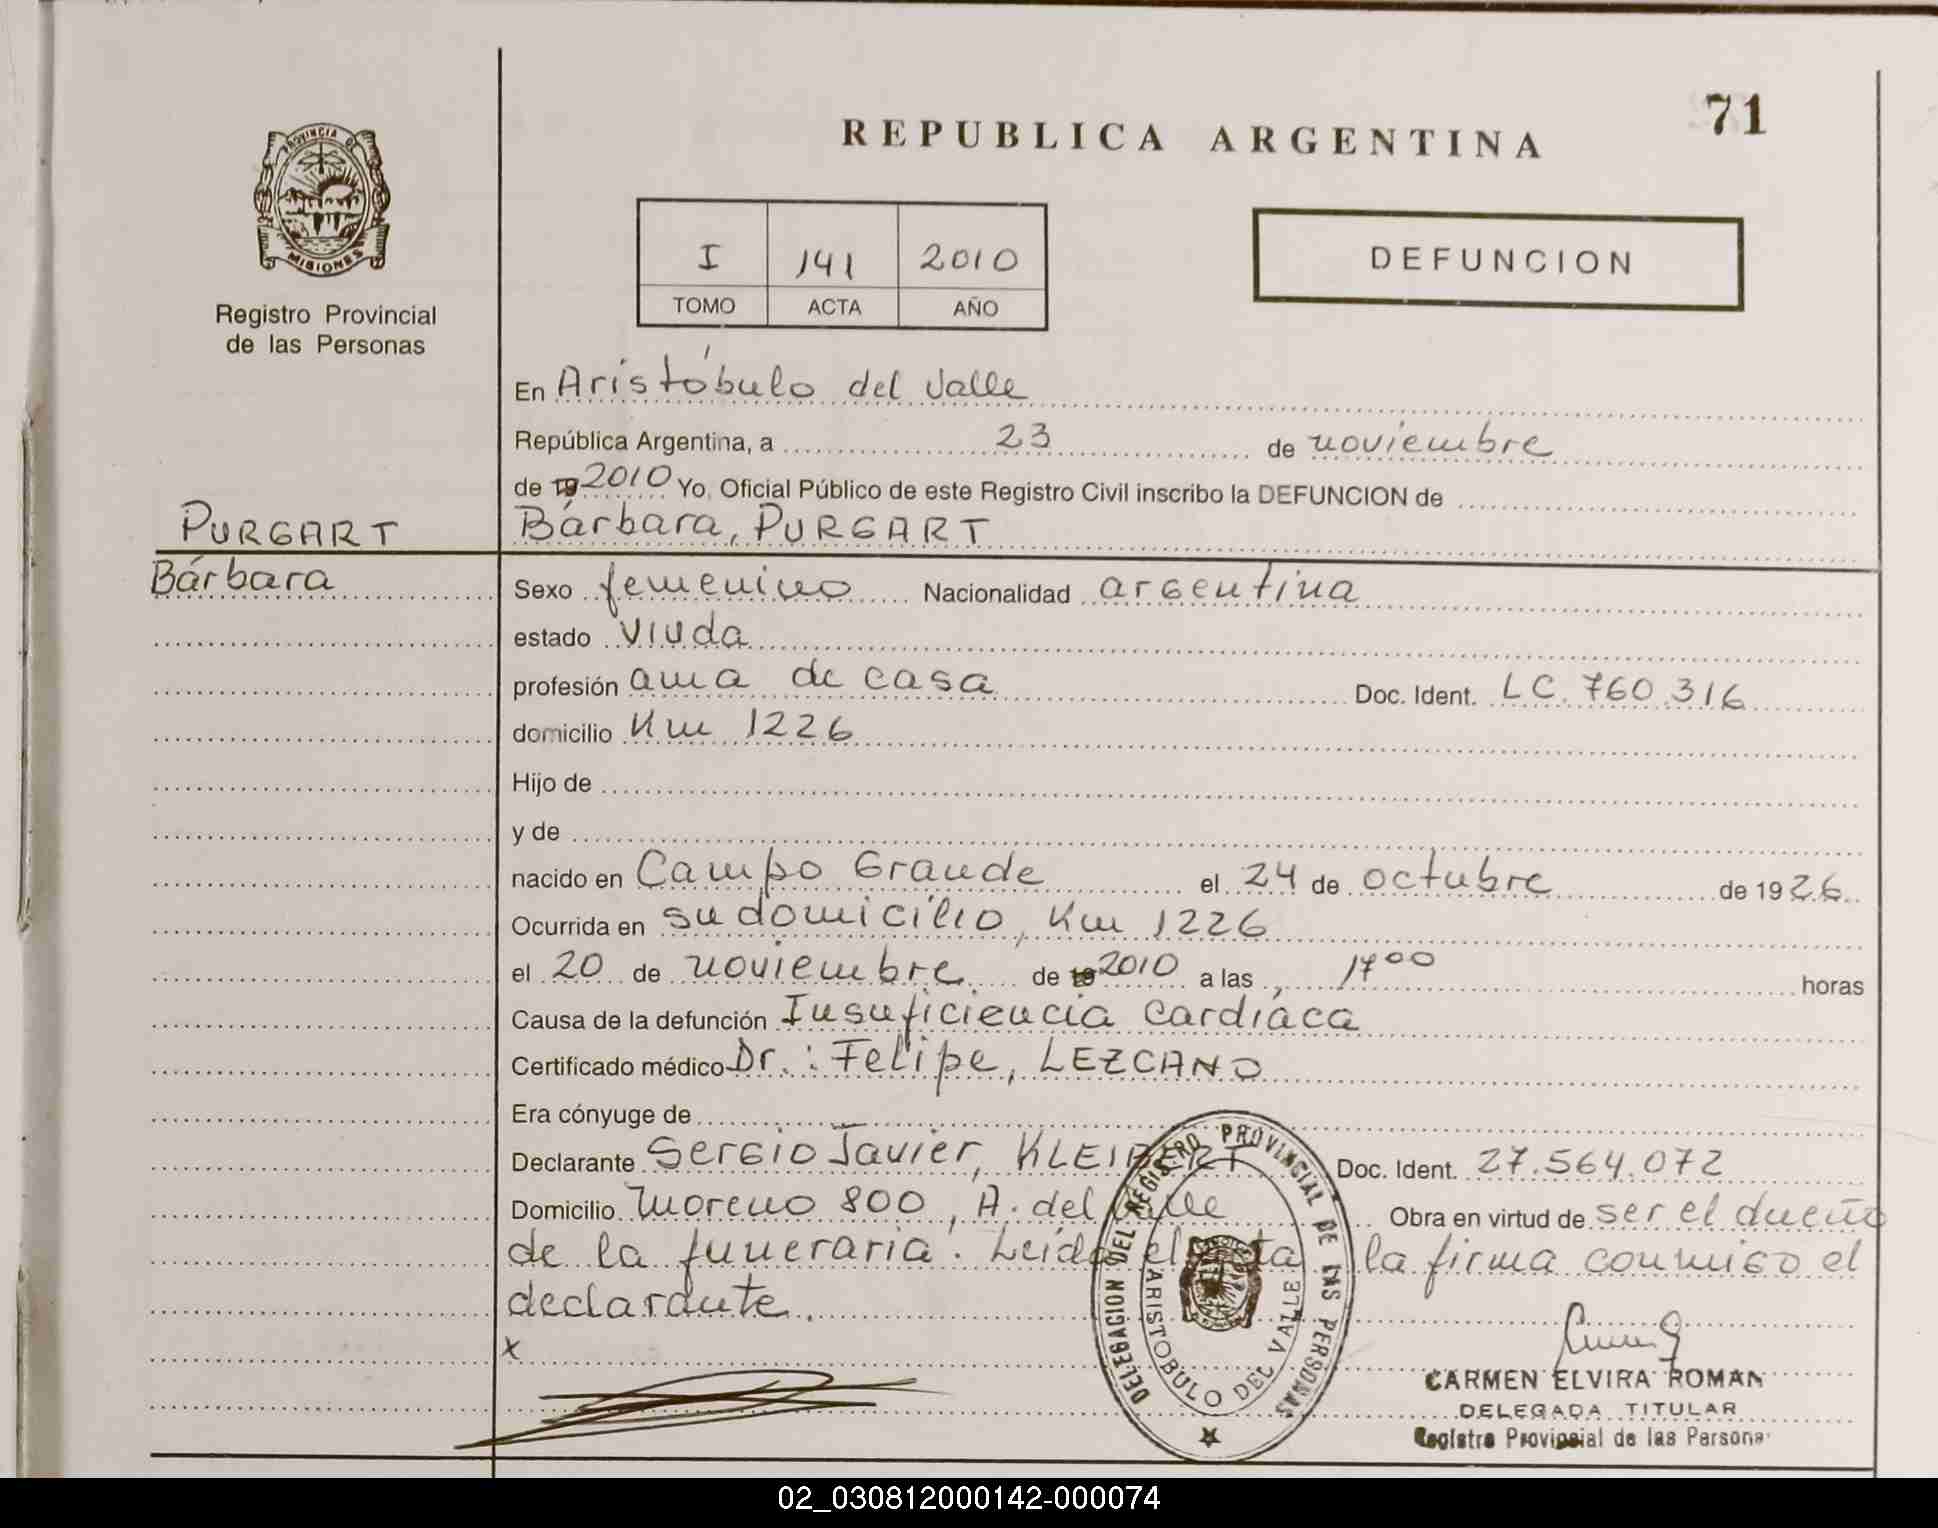 71
REPUBLICA ARGENTINA
PROVINCIA DE
MISIONES
Registro Provincial
de las Personas
I 141 2010
TOMO ACTA AÑO
DEFUNCION
En Aristóbulo del Valle
República Argentina, a 23 de noviembre
de 19 2010 Yo, Oficial Público de este Registro Civil inscribo la DEFUNCION de
PURGART
Bárbara, PURGART
Bárbara
Sexo femenino Nacionalidad argentina
estado viuda
profesión ama de casa Doc. Ident. LC. 760.316
domicilio Km 1226
Hijo de
y de
nacido en Campo Grande el 24 de octubre de 1926
Ocurrida en su domicilio, Km 1226
el 20 de noviembre de 19 2010 a las 17 00 horas
Causa de la defunción Insuficiencia cardíaca
Certificado médico Dr.: Felipe, LEZCANO
Era cónyuge de
Declarante Sergio Javier, KLEIBERT Doc. Ident. 27.564.072
Domicilio Moreno 800, A. del Valle Obra en virtud de ser el dueño
de la funeraria. Leída el acta la firma conmigo el
declarante.
x
DELEGACION DEL REGISTRO PROVINCIAL DE LAS PERSONAS
ARISTOBULO DEL VALLE
CARMEN ELVIRA ROMAN
DELEGADA TITULAR
Registro Provincial de las Persona
02_030812000142-000074